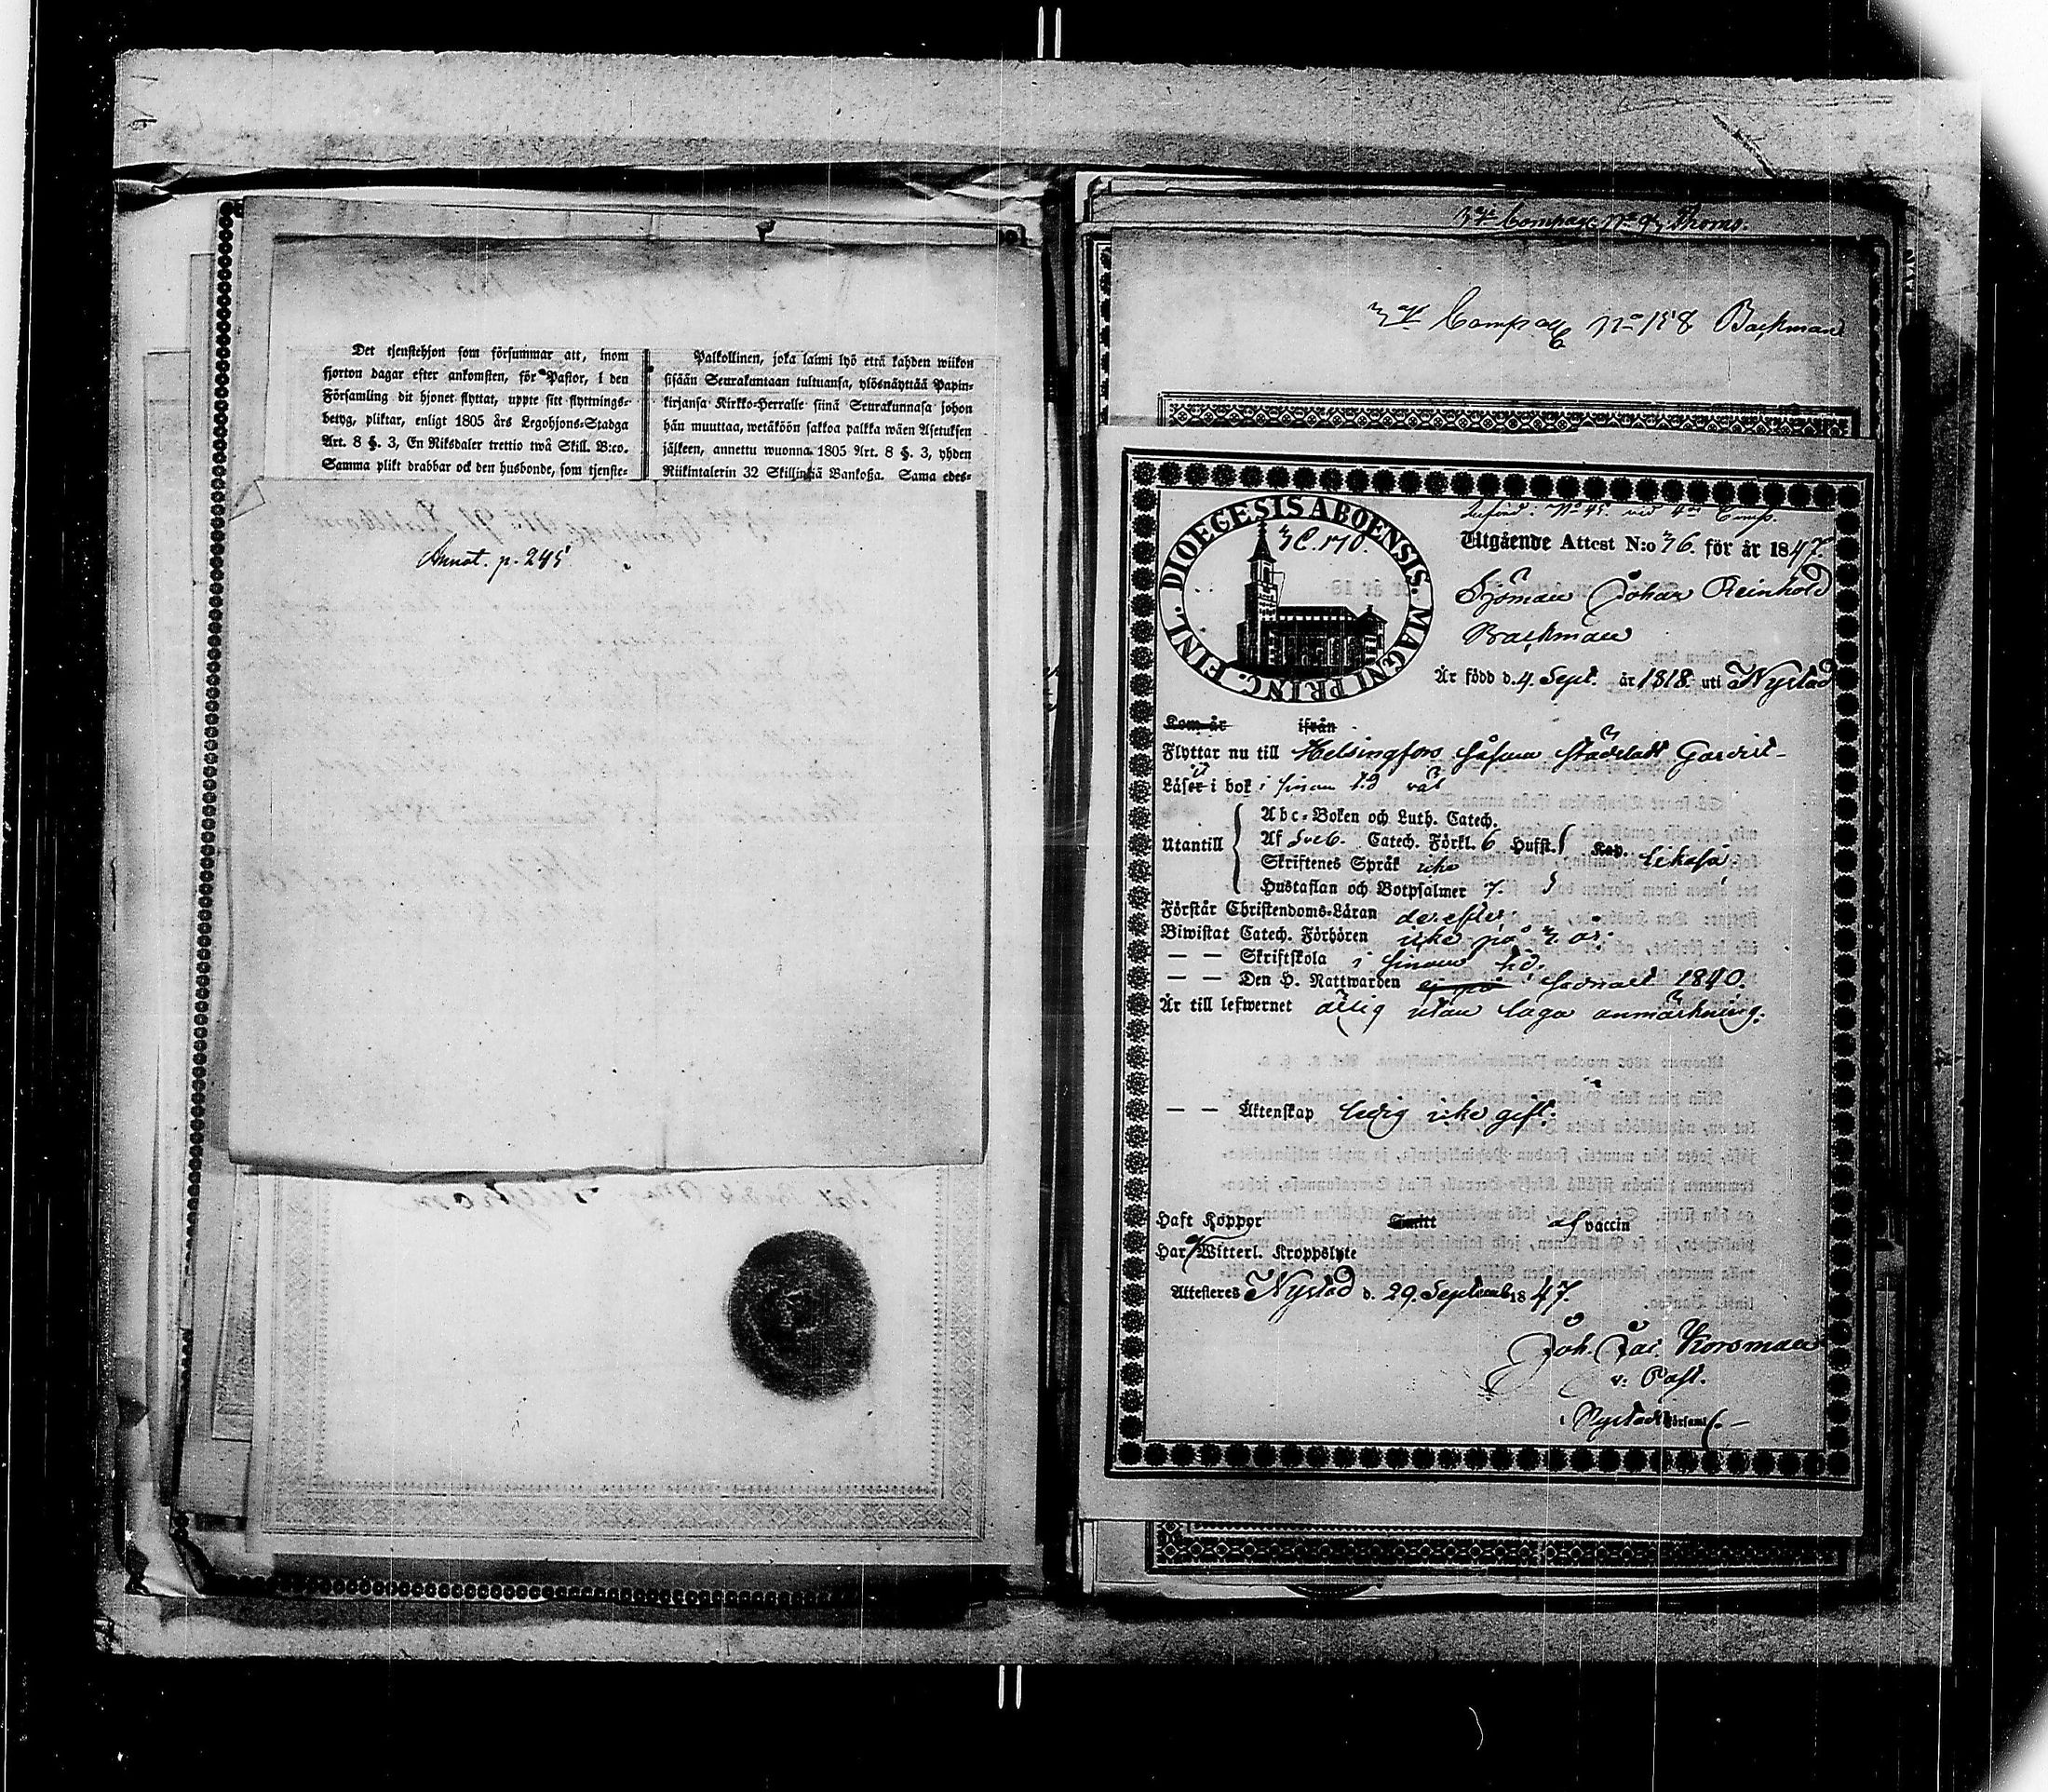 Det tjenstehjon som försummar att, inom
fjorton dagar efter ankomsten, för Pastor, i den
Församling dit hjonet flyttat, uppte sitt flyttnings-
betyg, pliktar, enligt 1805 års Legohjons-Stadga
Art. 8 §. 3, En Riksdaler trettio twå Skill. B:co.
Samma plikt drabbar ock den husbonde, som tjenste-
Palkollinen, joka laimi lyö että kahden wiikon
sisään Seurakuntaan tultuansa, ylösnäyttää Papin-
kirjansa Kirkko-Herralle siinä Seurakunnasa johon
hän muuttaa, wetäköön sakkoa palkka wäen Asetuksen
jälkeen, annettu wuonna 1805 Art. 8 §. 3, yhden
Riikintalerin 32 Skillinkiä Bankoßa. Sama edes-
Annot. p. 245
3die Compagn No 158 Backman
DIOECESIS ABOENSIS. MAGNI PRINC. FINL.
3 C. 170.
Utgående Attest N:o 36. för år 1847.
Sjöman Johan Reinhold
Backman
Är född d. 4. Sept. år 1818. uti Nystad
Kom år ifrån
Flyttar nu till Helsingfors såsom Gardist
Läser i bok i sinom tid
Utantill
Abc-Boken och Luth. Catech.
Af Sveb. Catech. Förkl. 6 Hufst. Kap. likaså.
Skriftenes Språk icke
Hustaflan och Botpsalmer 7.
Förstår Christendoms-Läran derefter
Biwistat Catech. Förhören icke på 3. år.
— — Skriftskola i sinom tid.
— — Den H. Nattwarden ej på sednast 1840.
Är till lefwernet ärlig utan laga anmärkning.
— — Äktenskap ledig icke gift.
Haft Koppor Smitt af vaccin
Har Witterl. Kroppslyte
Attesteres Nystad d. 29. Septemb 1847.
Joh. Jac. Korsman
v. Past.
i Nystads Församl.